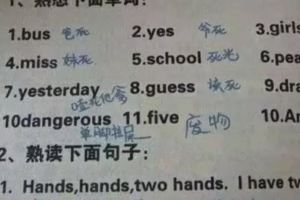 1、熟悉下面单词：
1.bus 爸死 2.yes 爷死 3.girls
4.miss 妹死 5.school 死光 6.pea
7.yesterday 8.guess 该死 9.dra
哑死他爹
10dangerous 11.five 废物 10.An
单脚拉屎
2、熟读下面句子：
1. Hands,hands,two hands. I have tw